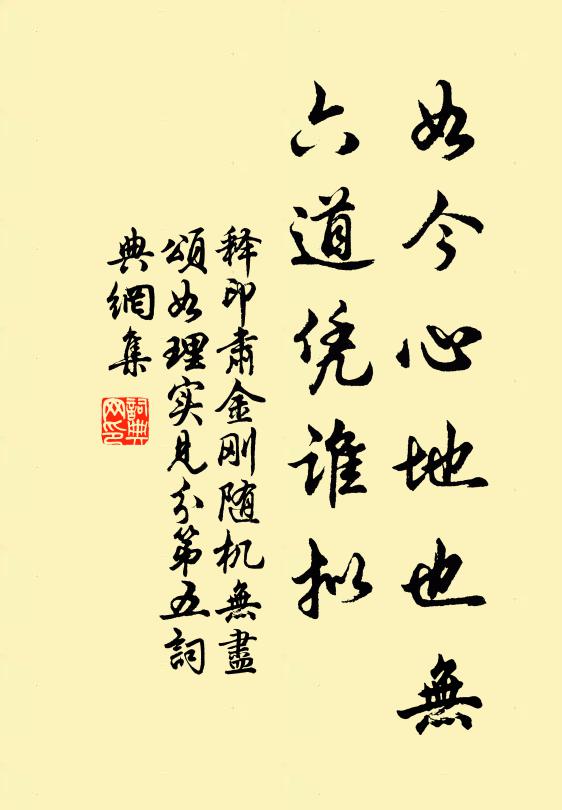 如今心地也無
六道凭谁拟
释印肃金刚随机無盡
頌如理实见分第五詞
典網集
詞典网印